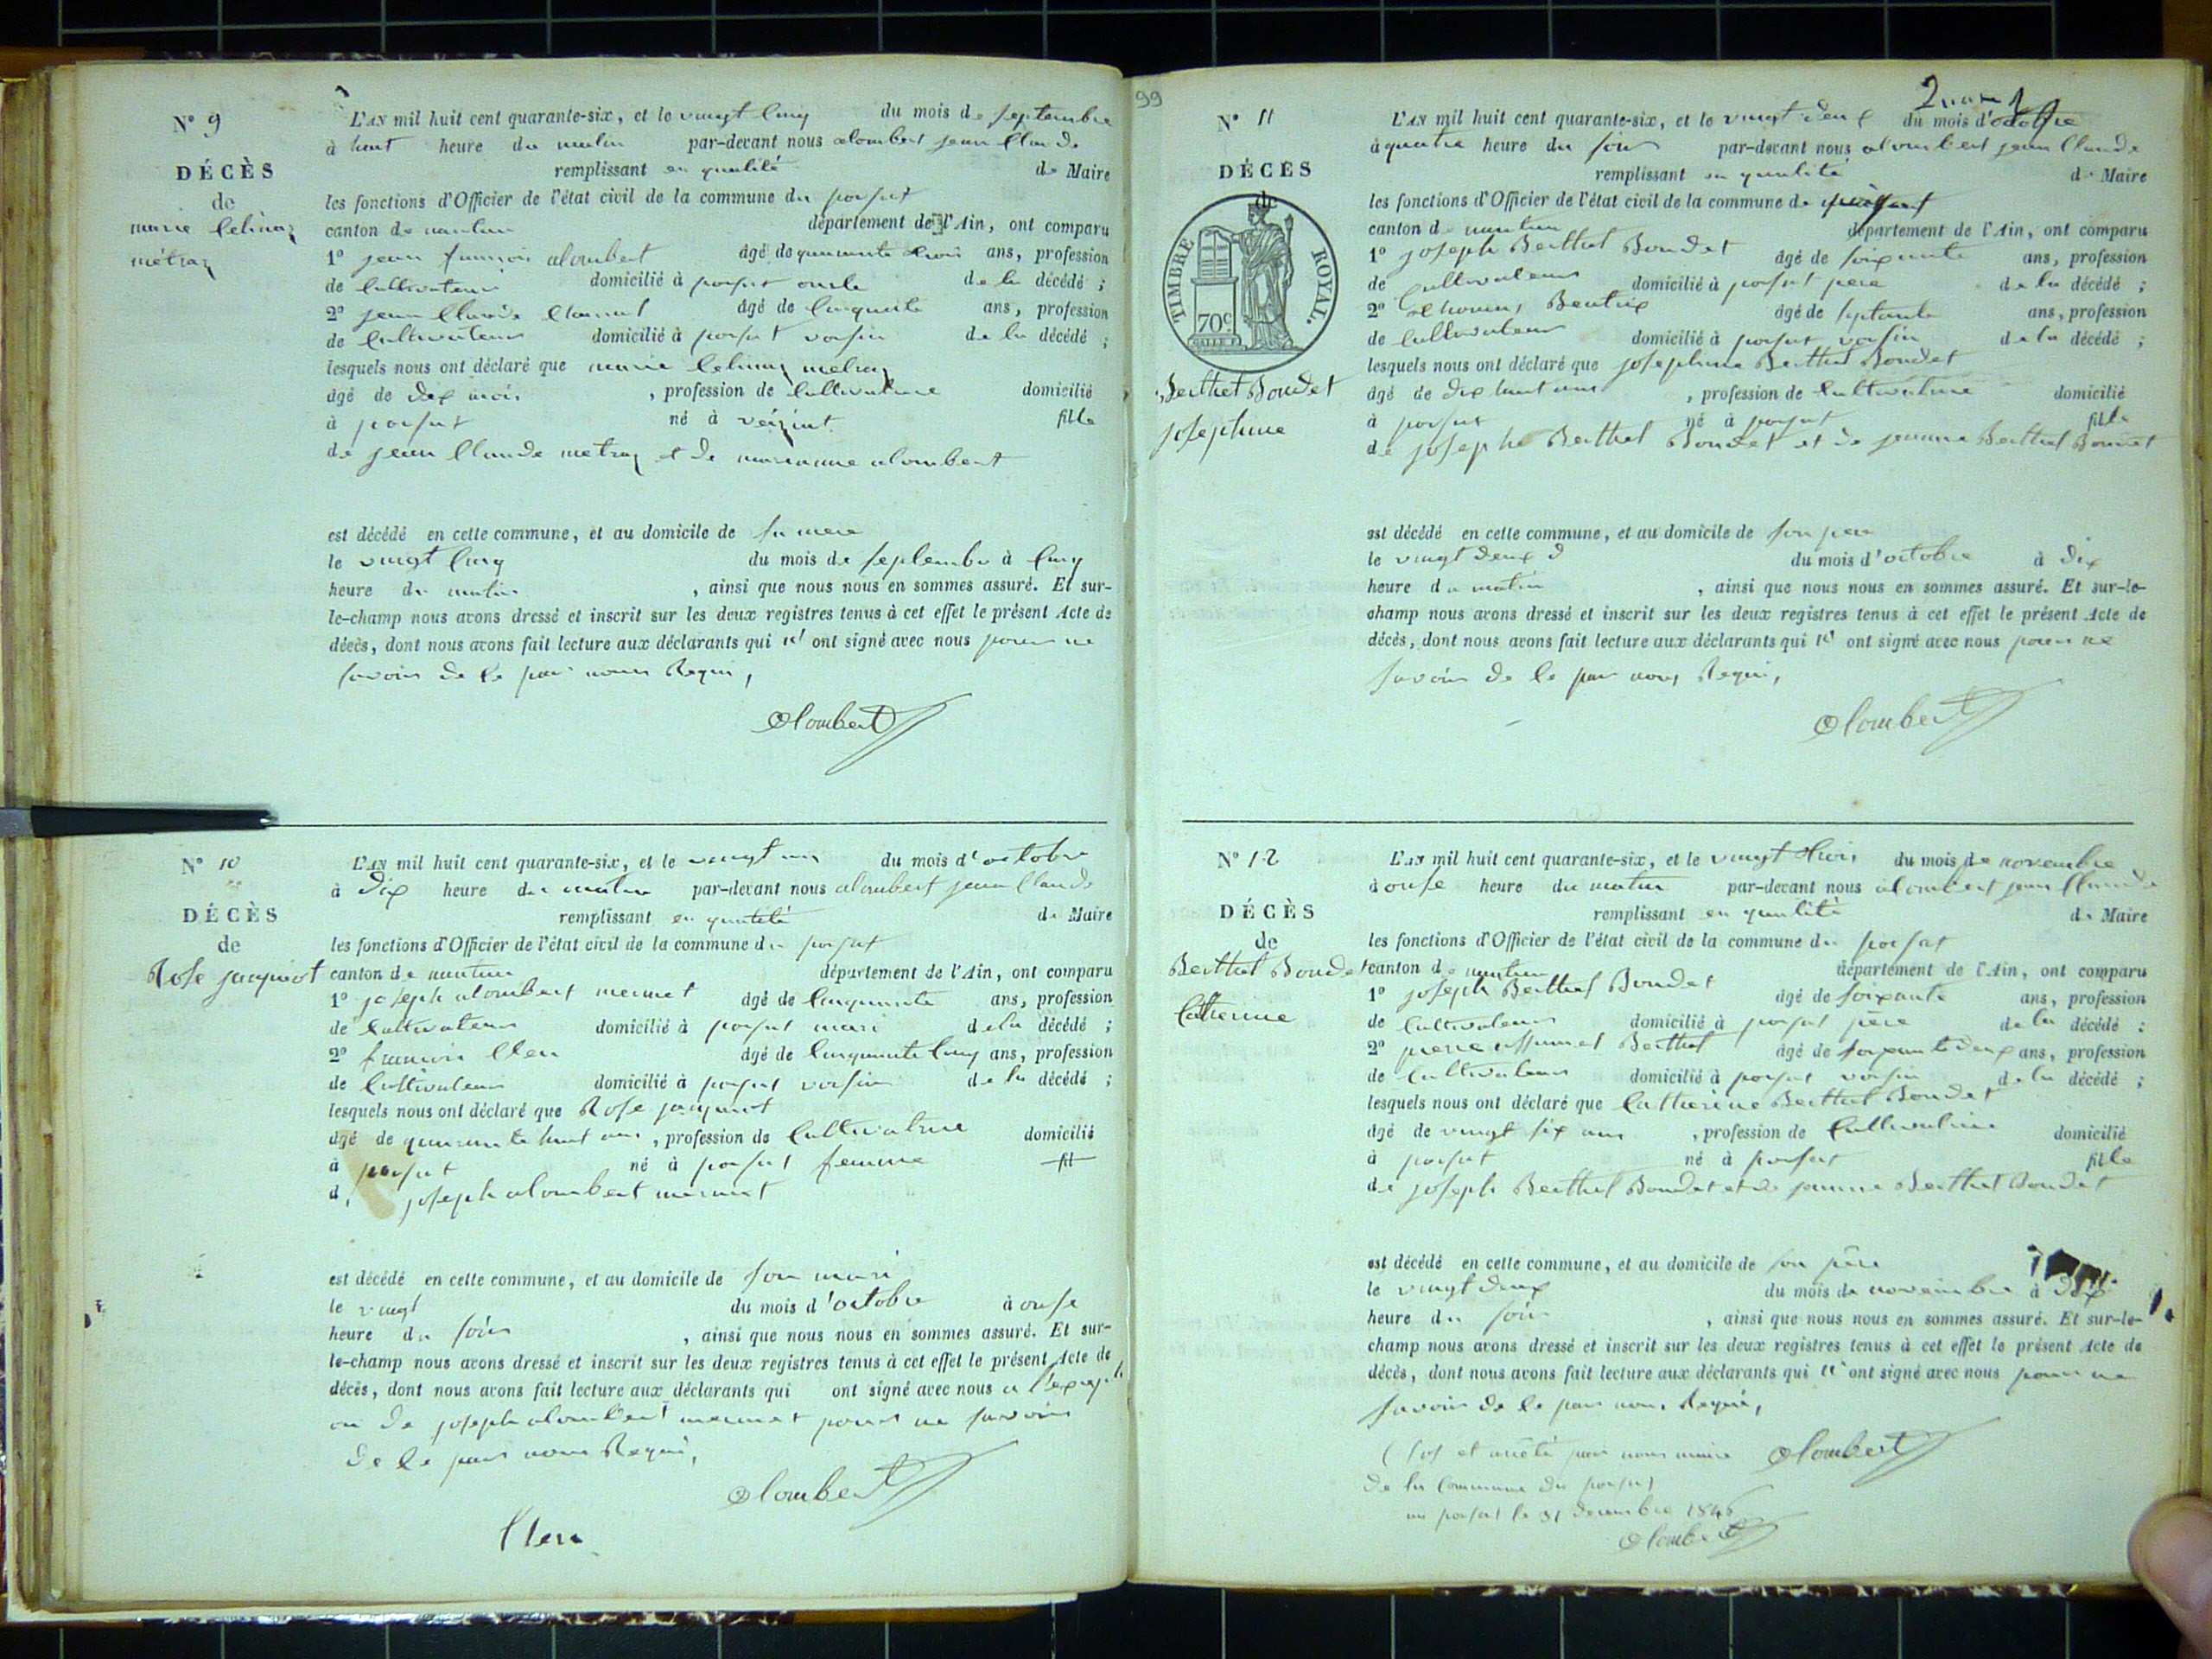 N° 9
DÉCÈS
de
marie Celinaz
métraz
L'AN mil huit cent quarante-six, et le vingt Cinq du mois de septembre
à huit heure du matin par-devant nous alombert jean Claude
remplissant en qualité de Maire
les fonctions d'Officier de l'état civil de la commune du poisat
canton de nantua département de l'Ain, ont comparu
1° jean françois alombert âgé de quarante trois ans, profession
de Cultivateur domicilié à poisat oncle de la décédé ;
2° jean Claude âgé de Cinquante ans, profession
de Cultivateur domicilié à poisat voisin de la décédé ;
lesquels nous ont déclaré que marie Celinaz metraz
âgé de dix mois , profession de Cultivatrice domicilié
à poisat né à fille
de jean Claude metraz et de marianne alombert
est décédé en cette commune, et au domicile de sa mere
le vingt Cinq du mois de septembre à Cinq
heure du matin , ainsi que nous nous en sommes assuré. Et sur-
le-champ nous avons dressé et inscrit sur les deux registres tenus à cet effet le présent Acte de
décès, dont nous avons fait lecture aux déclarants qui n' ont signé avec nous pour ne
savoir de ce par nous Requi,
alombert
N° 10
DÉCÈS
de
Rose jacquiot
L'AN mil huit cent quarante-six, et le vingt un du mois d'octobre
à dix heure du matin par-devant nous alombert jean Claude
remplissant en qualité de Maire
les fonctions d'Officier de l'état civil de la commune du poisat
canton de nantua département de l'Ain, ont comparu
1° joseph alombert mermet âgé de Cinquante ans, profession
de Cultivateur domicilié à poisat mari de la décédé ;
2° françois Clerc âgé de Cinquante Cinq ans, profession
de Cultivateur domicilié à poisat voisin de la décédé ;
lesquels nous ont déclaré que Rose jacquiot
âgé de quarante huit ans , profession de Cultivatrice domicilié
à poisat né à poisat femme fil
d, joseph alombert mermet
est décédé en cette commune, et au domicile de son mari
le vingt du mois d'octobre à onse
heure du soir , ainsi que nous nous en sommes assuré. Et sur-
le-champ nous avons dressé et inscrit sur les deux registres tenus à cet effet le présent Acte de
décès, dont nous avons fait lecture aux déclarants qui ont signé avec nous a l'exepti
on de joseph alombert mermet pour ne savoir
de ce par nous Requi,
alombert
Clerc
99
N° 11
DÉCÈS
de
TIMBRE ROYAL.
70c
Berthet Bondet
josephine
L'AN mil huit cent quarante-six, et le vingt deux du mois d'octobre
à quatre heure du soir par-devant nous alombert jean Claude
remplissant en qualité de Maire
les fonctions d'Officier de l'état civil de la commune du poisat
canton de nantua département de l'Ain, ont comparu
1° joseph Berthet Bondet âgé de soixante ans, profession
de Cultivateur domicilié à poisat pere de la décédé ;
2° thomas Beatrix âgé de septante ans, profession
de Cultivateur domicilié à poisat voisin de la décédé ;
lesquels nous ont déclaré que josephine Berthet Bondet
âgé de dix huit ans , profession de Cultivatrice domicilié
à poisat né à poisat fille
de joseph Berthet Bondet et de jeanne Berthet Bondet
est décédé en cette commune, et au domicile de son pere
le vingt deux d du mois d'octobre à dix
heure du matin , ainsi que nous nous en sommes assuré. Et sur-le-
champ nous avons dressé et inscrit sur les deux registres tenus à cet effet le présent Acte de
décès, dont nous avons fait lecture aux déclarants qui n' ont signé avec nous pour ne
savoir de ce par nous Requi,
alombert
N° 12
DÉCÈS
de
Berthet Bondet
Catherine
L'AN mil huit cent quarante-six, et le vingt trois du mois de novembre
à onse heure du matin par-devant nous alombert jean Claude
remplissant en qualité de Maire
les fonctions d'Officier de l'état civil de la commune du poisat
canton de nantua département de l'Ain, ont comparu
1° joseph Berthet Bondet âgé de soixante ans, profession
de Cultivateur domicilié à poisat père de la décédé ;
2° pierre Berthet âgé de soixante deux ans, profession
de Cultivateur domicilié à poisat voisin de la décédé ;
lesquels nous ont déclaré que Catherine Berthet Bondet
âgé de vingt six ans , profession de Cultivatrice domicilié
à poisat né à poisat fille
de joseph Berthet Bondet et de jeanne Berthet Bondet
est décédé en cette commune, et au domicile de son père
le vingt deux du mois de novembre à dix
heure du soir , ainsi que nous nous en sommes assuré. Et sur-le-
champ nous avons dressé et inscrit sur les deux registres tenus à cet effet le présent Acte de
décès, dont nous avons fait lecture aux déclarants qui n' ont signé avec nous pour ne
savoir de ce par nous Requi,
Clos et arrêté par nous maire alombert
de la Commune du poisat
au poisat le 31 decembre 1846
alombert